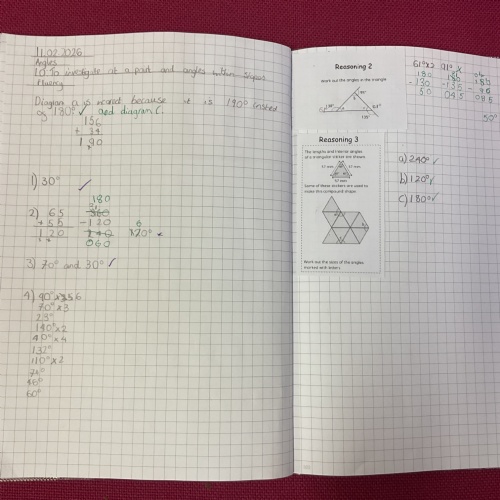 11.02.2026
Angles
LO To investigate at a point and angles within shapes
Fluency
Diagram a is incorrect because it is 190° instead
of 180° ✓ and diagram C.
156
+ 34
190
1) 30° ✓
2) 65
+ 55
120
180
360
- 120
240
060
6
120°
3) 70° and 30° ✓
4) 90°
70° x 3
23°
140° x 2
40° x 4
132°
110° x 2
60°
Reasoning 2
Work out the angles in the triangle.
135°
Reasoning 3
The lengths and interior angles
of a triangular sticker are shown.
57 mm
57 mm
57 mm
Some of these stickers are used to
make this compound shape.
Work out the sizes of the angles
marked with letters.
180
- 130
50
- 135
045
50°
a) 240° ✓
b) 120° ✓
c) 180° ✓